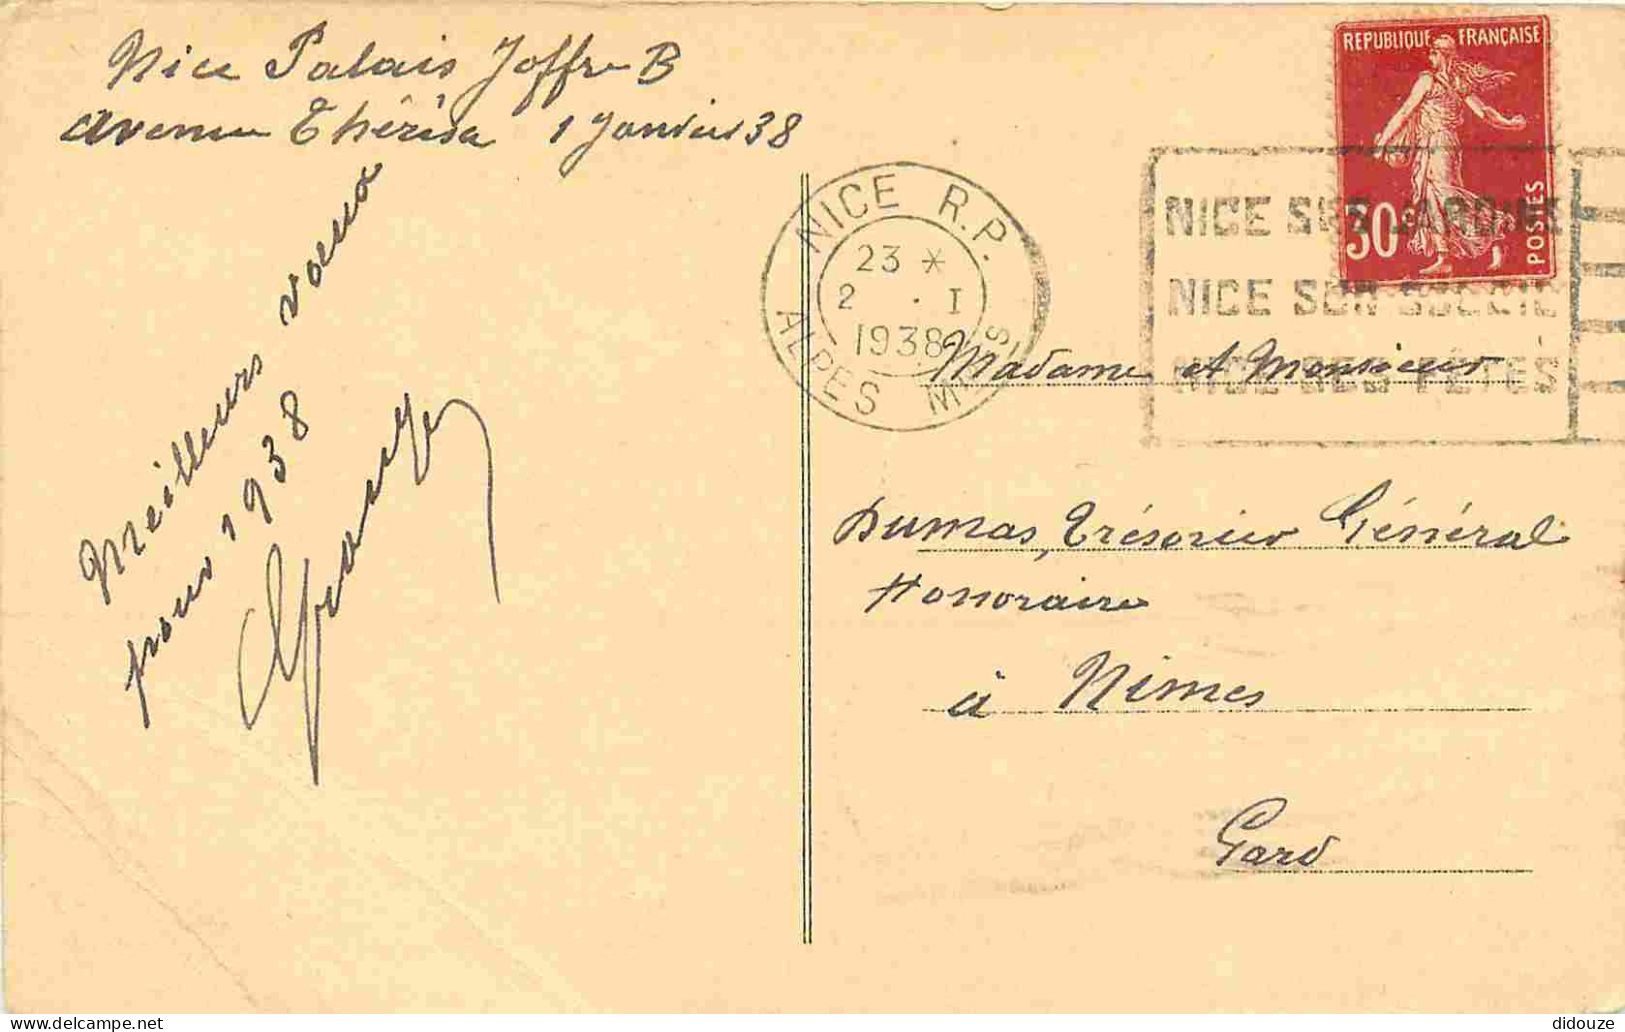 Nice Palais Joffre B
avenue Thérésa 1 Janvier 38
Meilleurs voeux
pour 1938
REPUBLIQUE FRANÇAISE
30c
POSTES
NICE R.P.
23 *
2 . I
1938
ALPES M.ES
NICE SES JARDINS
NICE SON SOLEIL
NICE SES FÊTES
Madame et Monsieur
Dumas, Trésorier Général
Honoraire
à Nimes
Gard
didouze